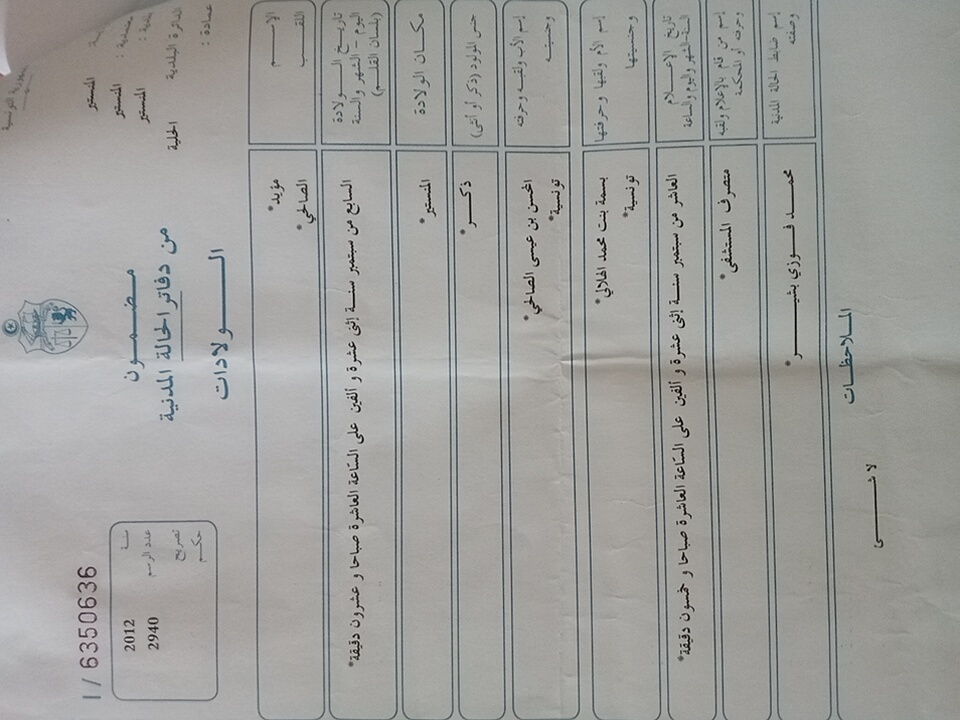 الجمهورية التونسية
المنستير
معتمدية : المنستير
بلدية : المنستير
الدائرة البلدية المحلية
عمادة :
مضمون
من دفاتر الحالة المدنية
الولادات
I / 6350636
سنة 2012
عدد الرسم 2940
تصريح
حكم
الإسم مؤيد*
اللقب الصالحي*
تاريخ الولادة
اليوم - الشهر والسنة
(بلسان القلم)
السابع من سبتمبر سنة إثنى عشرة و ألفين على السّاعة العاشرة صباحا و عشرون دقيقة*
مكان الولادة المنستير*
جنس المولود (ذكر أو أنثى) ذكر*
إسم الأب ولقبه وحرفته المحسن بن عيسى الصالحي*
وجنسيته تونسية*
إسم الأم ولقبها وحرفتها بسمة بنت محمد الهلالي*
وجنسيتها تونسية*
تاريخ الإعلام
السنة والشهر واليوم والساعة
العاشر من سبتمبر سنة إثنى عشرة و ألفين على السّاعة العاشرة صباحا و خمسون دقيقة*
إسم من قام بالإعلام ولقبه
وحرفته أو المحكمة
متصرف المستشفى*
إسم ضابط الحالة المدنية
وصفته
محمد فوزي بشير*
الملاحظات
لا شيء